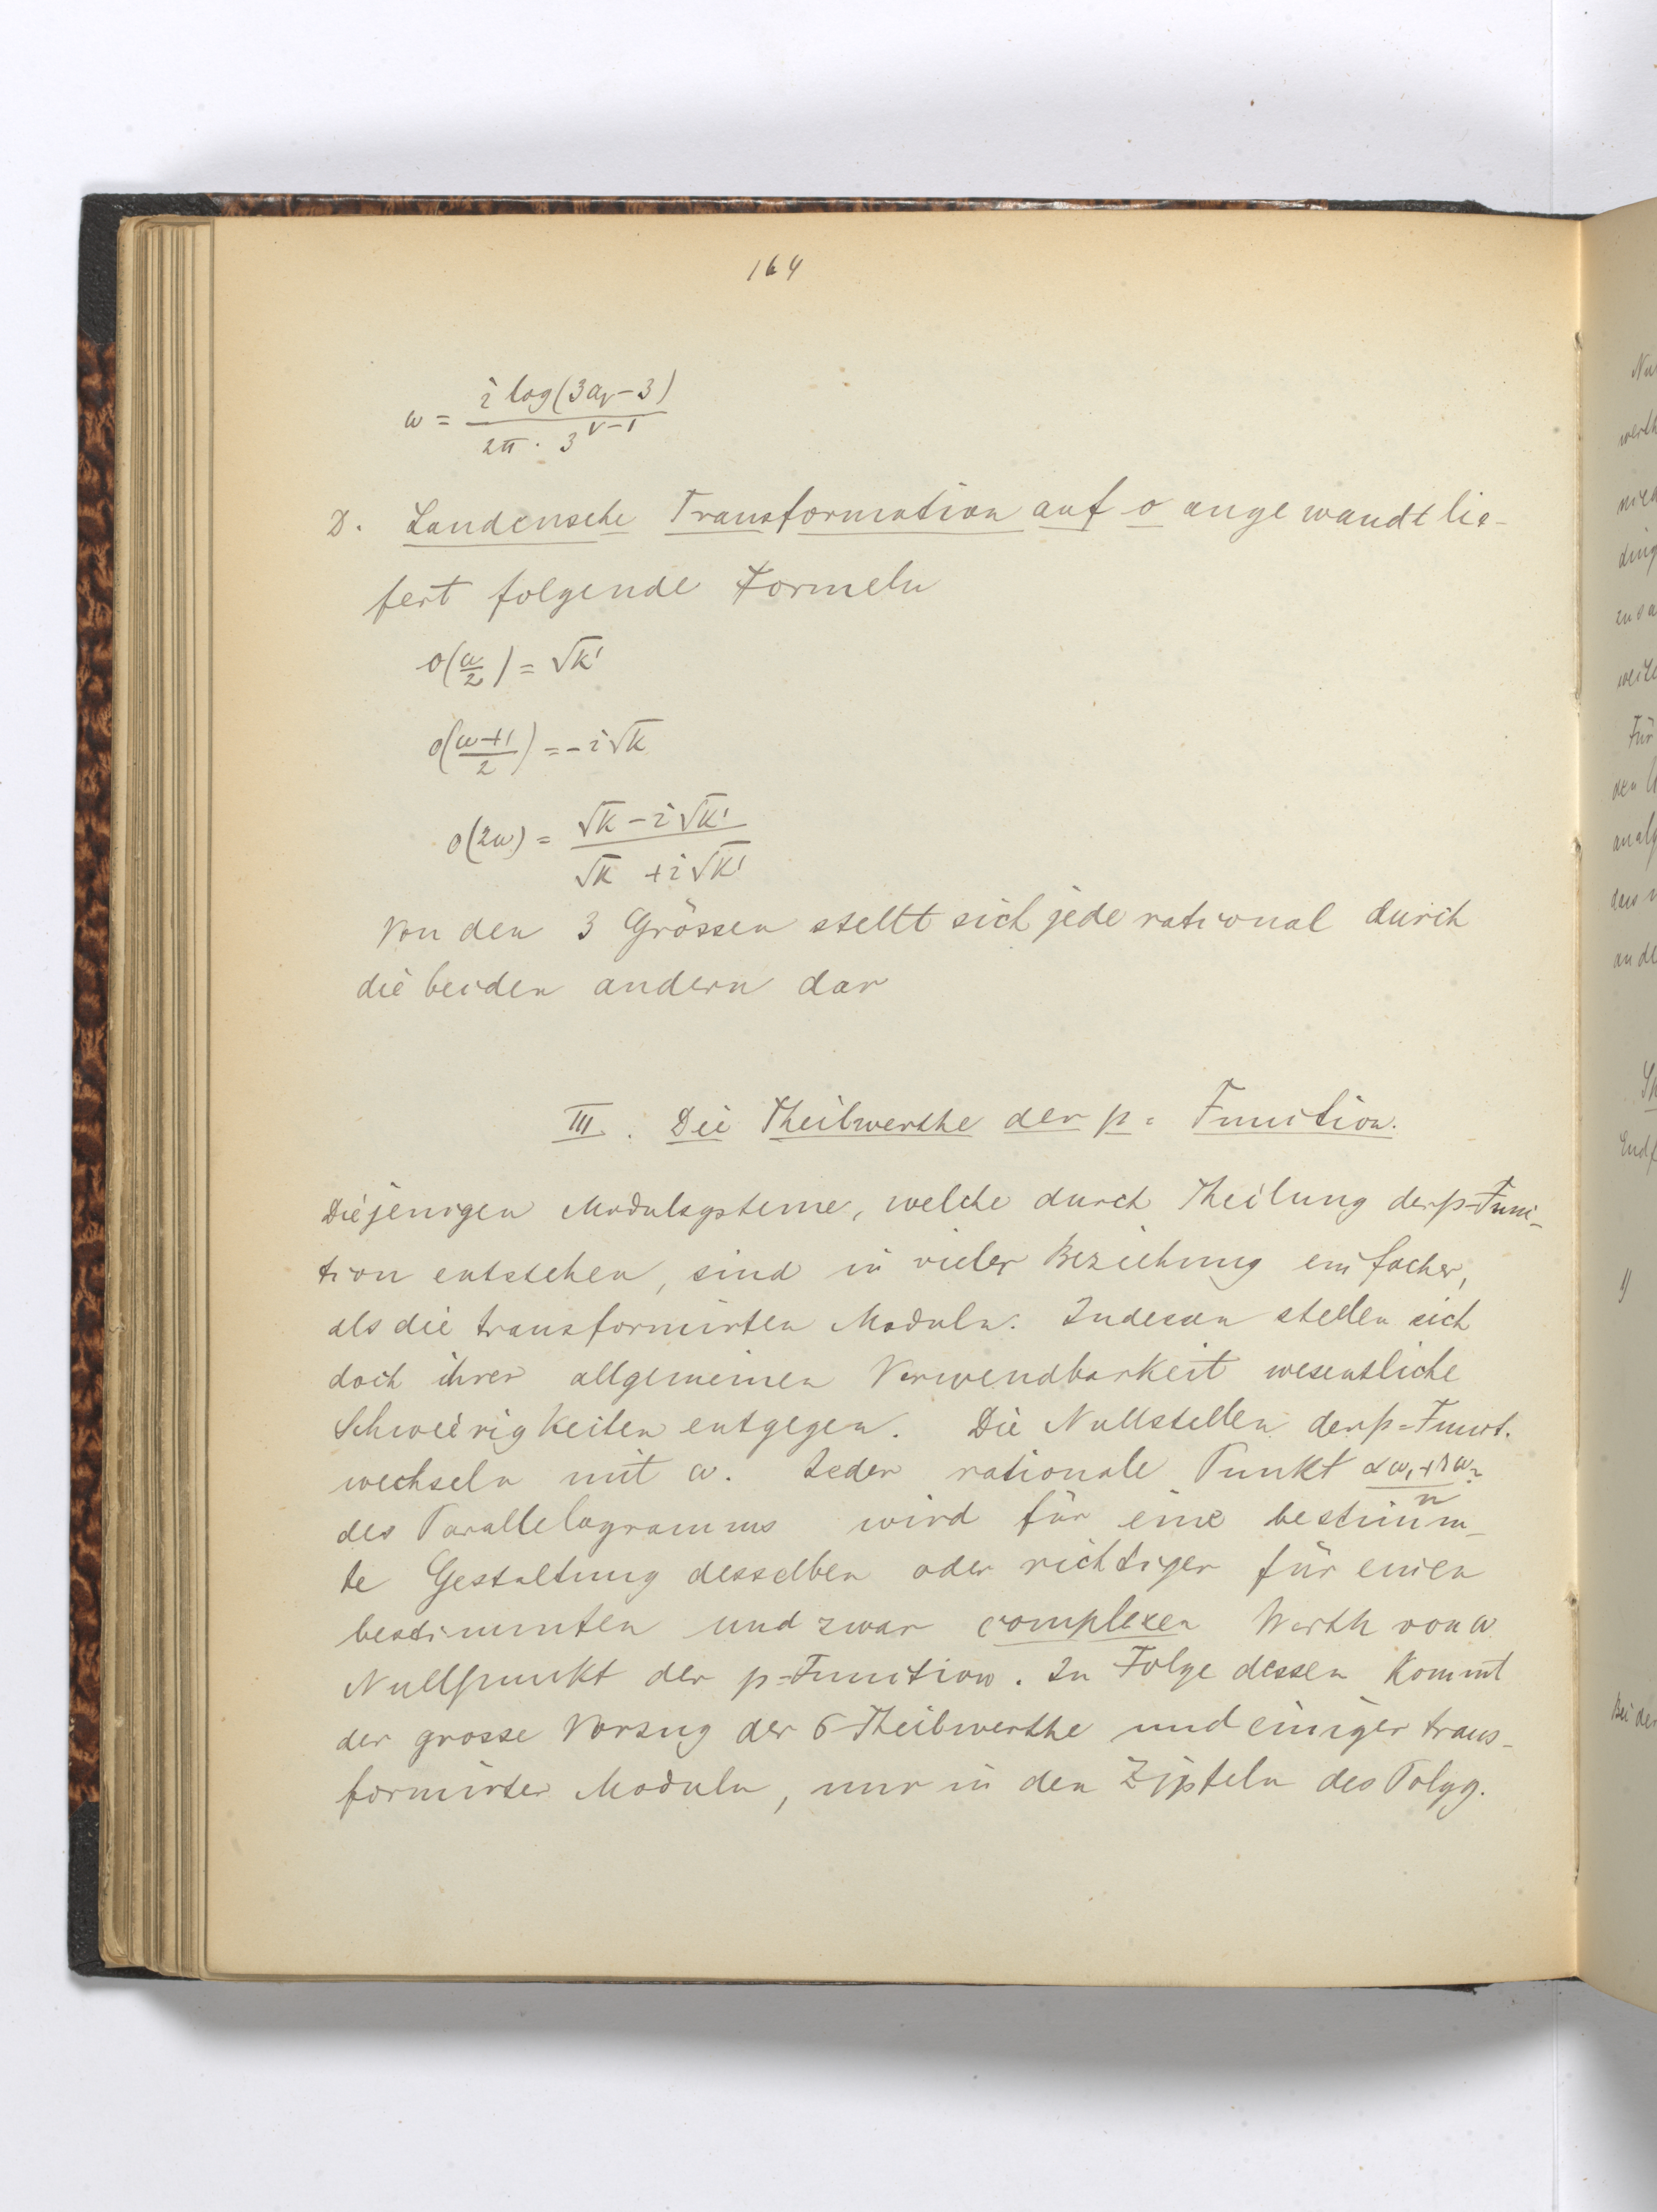 164
ω = i log(3aᵥ-3) / 2π · 3^(ν-1)
D. Landensche Transformation auf o angewandt lie-
fert folgende Formeln
o(ω/2) = √k'
o((ω+1)/2) = -i√k
o(2ω) = (√k - i√k') / (√k + i√k')
Von den 3 Grössen stellt sich jede rational durch
die beiden andern dar
III. Die Theilwerthe der p = Function.
Diejenigen Modulsysteme, welche durch Theilung der p-Func-
tion entstehen, sind in vieler Beziehung einfacher,
als die transformirten Moduln. Indessen stellen sich
doch ihrer allgemeinen Verwendbarkeit wesentliche
Schwierigkeiten entgegen. Die Nullstellen der p=Funct.
wechseln mit ω. Jeder rationale Punkt (αω₁+βω₂)/n
des Parallelogramms wird für eine bestimm-
te Gestaltung desselben oder richtiger für einen
bestimmten und zwar complexen Werth von ω
Nullpunkt der p=Function. In Folge dessen kommt
der grosse Vorzug der σ Theilwerthe und einiger trans-
formirter Moduln, nur in den Zipfeln des Polyg.